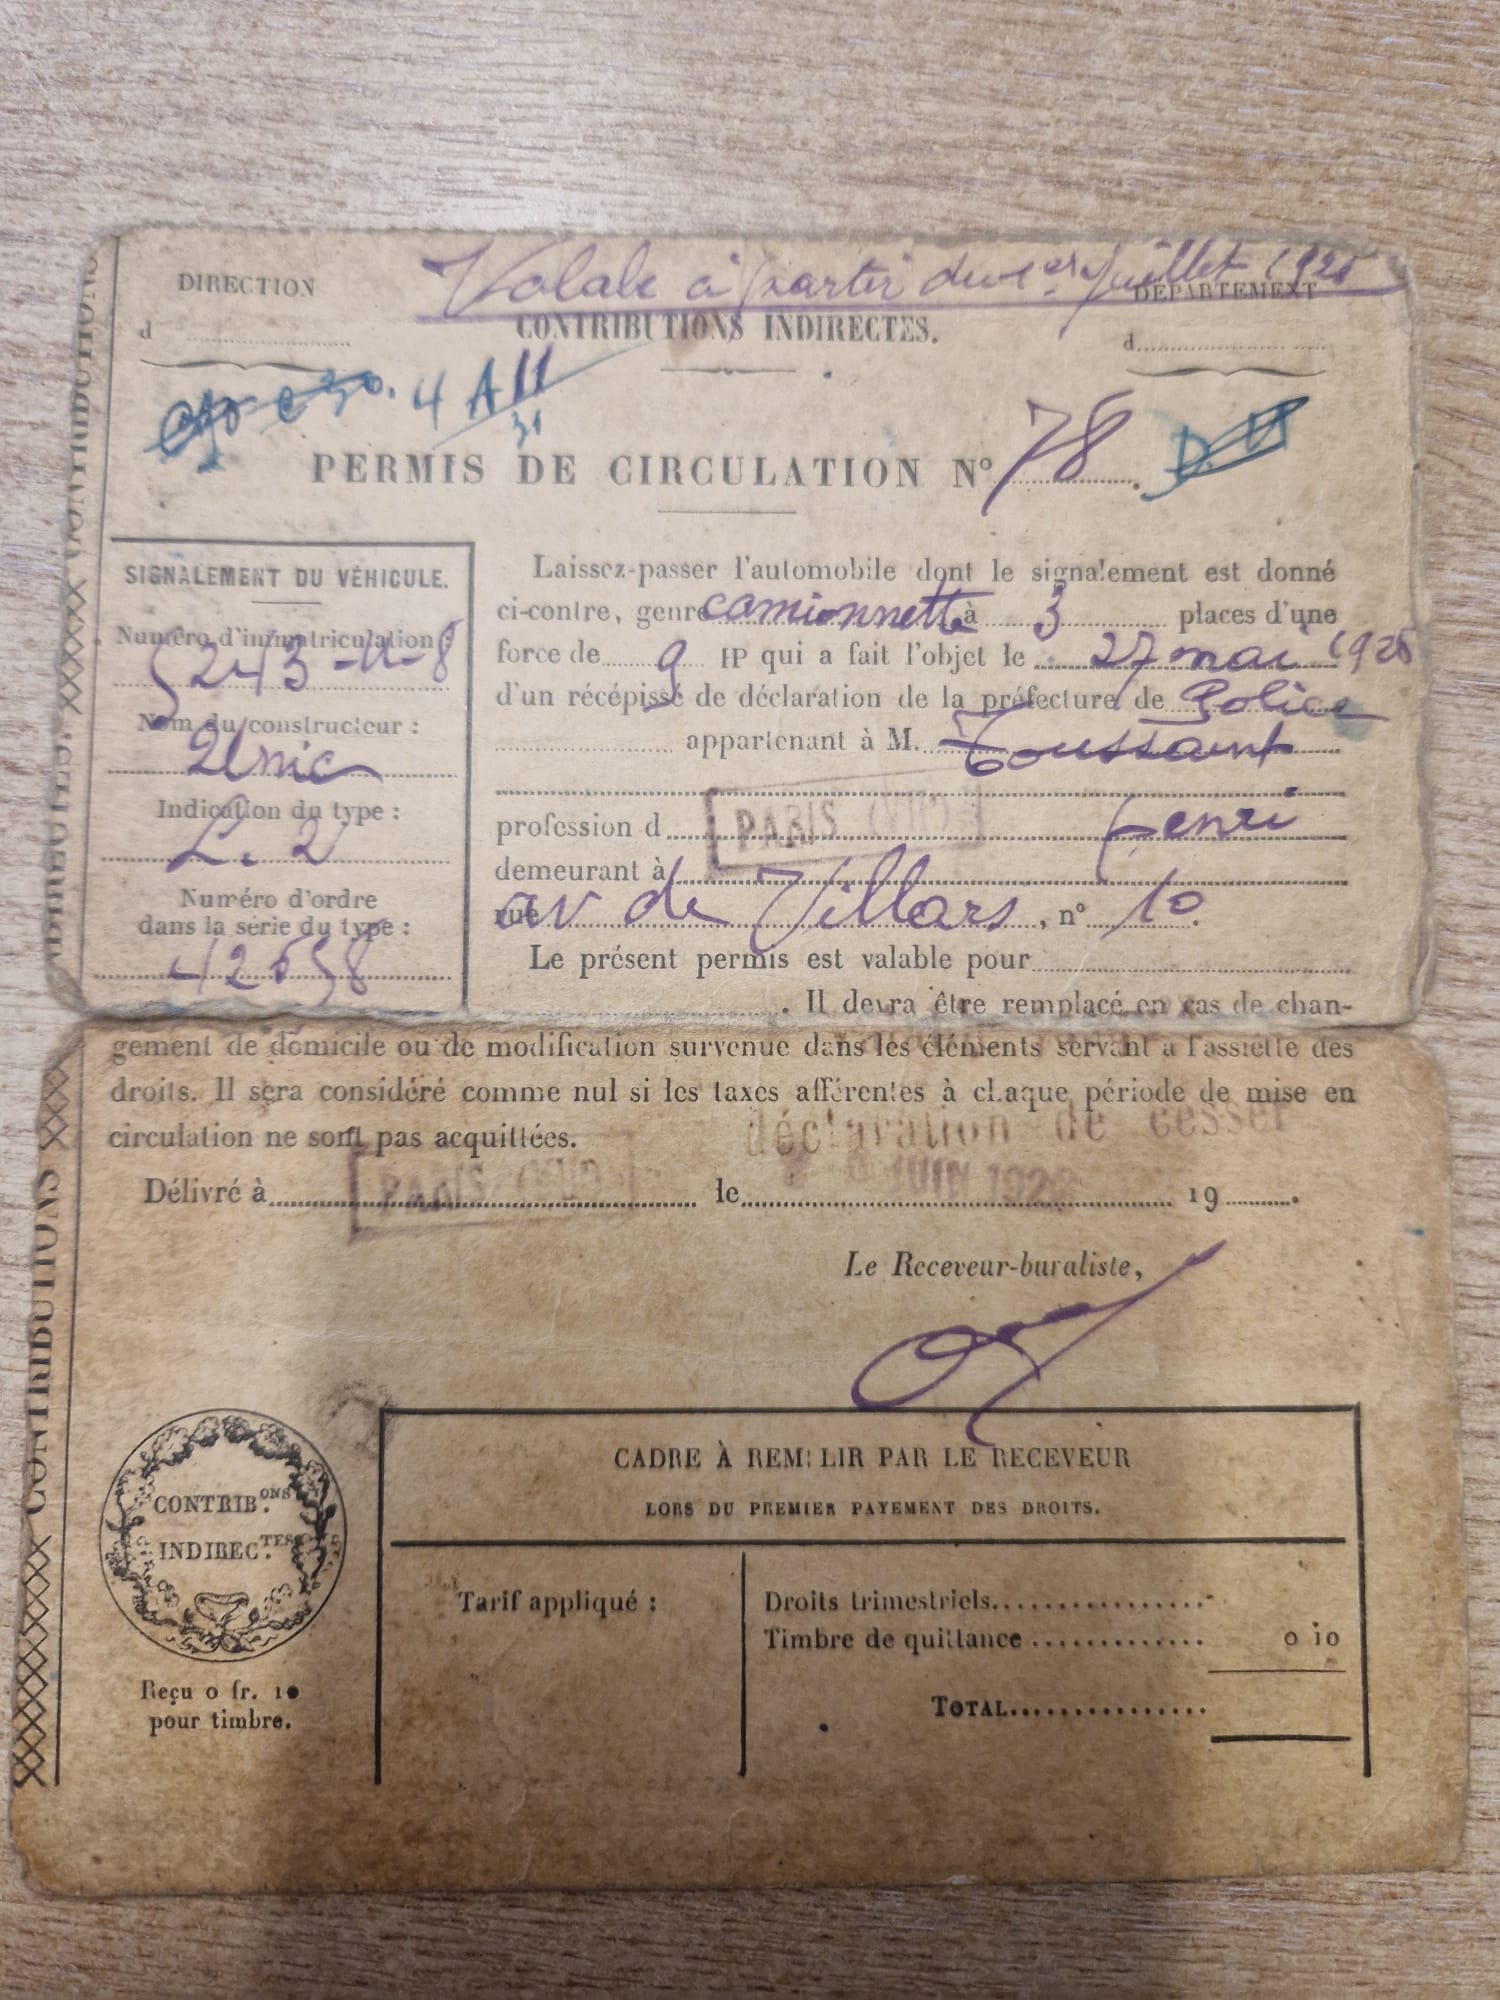 Valable à partir du 1er Juillet 1925
DIRECTION
d
CONTRIBUTIONS INDIRECTES.
DÉPARTEMENT
d
4 A 11
31
PERMIS DE CIRCULATION N° 78.
D.U
SIGNALEMENT DU VÉHICULE.
Numéro d'immatriculation
5243-U-8
Nom du constructeur :
Unic
Indication du type :
L. 2
Numéro d'ordre
dans la série du type :
Laissez-passer l'automobile dont le signalement est donné
ci-contre, genre camionnette à 3 places d'une
force de 9 HP qui a fait l'objet le 27 mai 1925
d'un récépissé de déclaration de la préfecture de Police
appartenant à M. Toussaint
profession d PARIS Henri
demeurant à
rue av de Villars, n° 10.
Le présent permis est valable pour
. Il devra être remplacé en cas de chan-
gement de domicile ou de modification survenue dans les éléments servant à l'assiette des
droits. Il sera considéré comme nul si les taxes afférentes à chaque période de mise en
circulation ne sont pas acquittées.
déclaration de cesser
Délivré à PARIS le JUIN 192 19 .
Le Receveur-buraliste,
CONTRIBUTIONS
CONTRIB.ONS
INDIREC.TES
Reçu 0 fr. 10
pour timbre.
CADRE À REMPLIR PAR LE RECEVEUR
LORS DU PREMIER PAYEMENT DES DROITS.
Tarif appliqué :
Droits trimestriels
Timbre de quittance 0 10
TOTAL